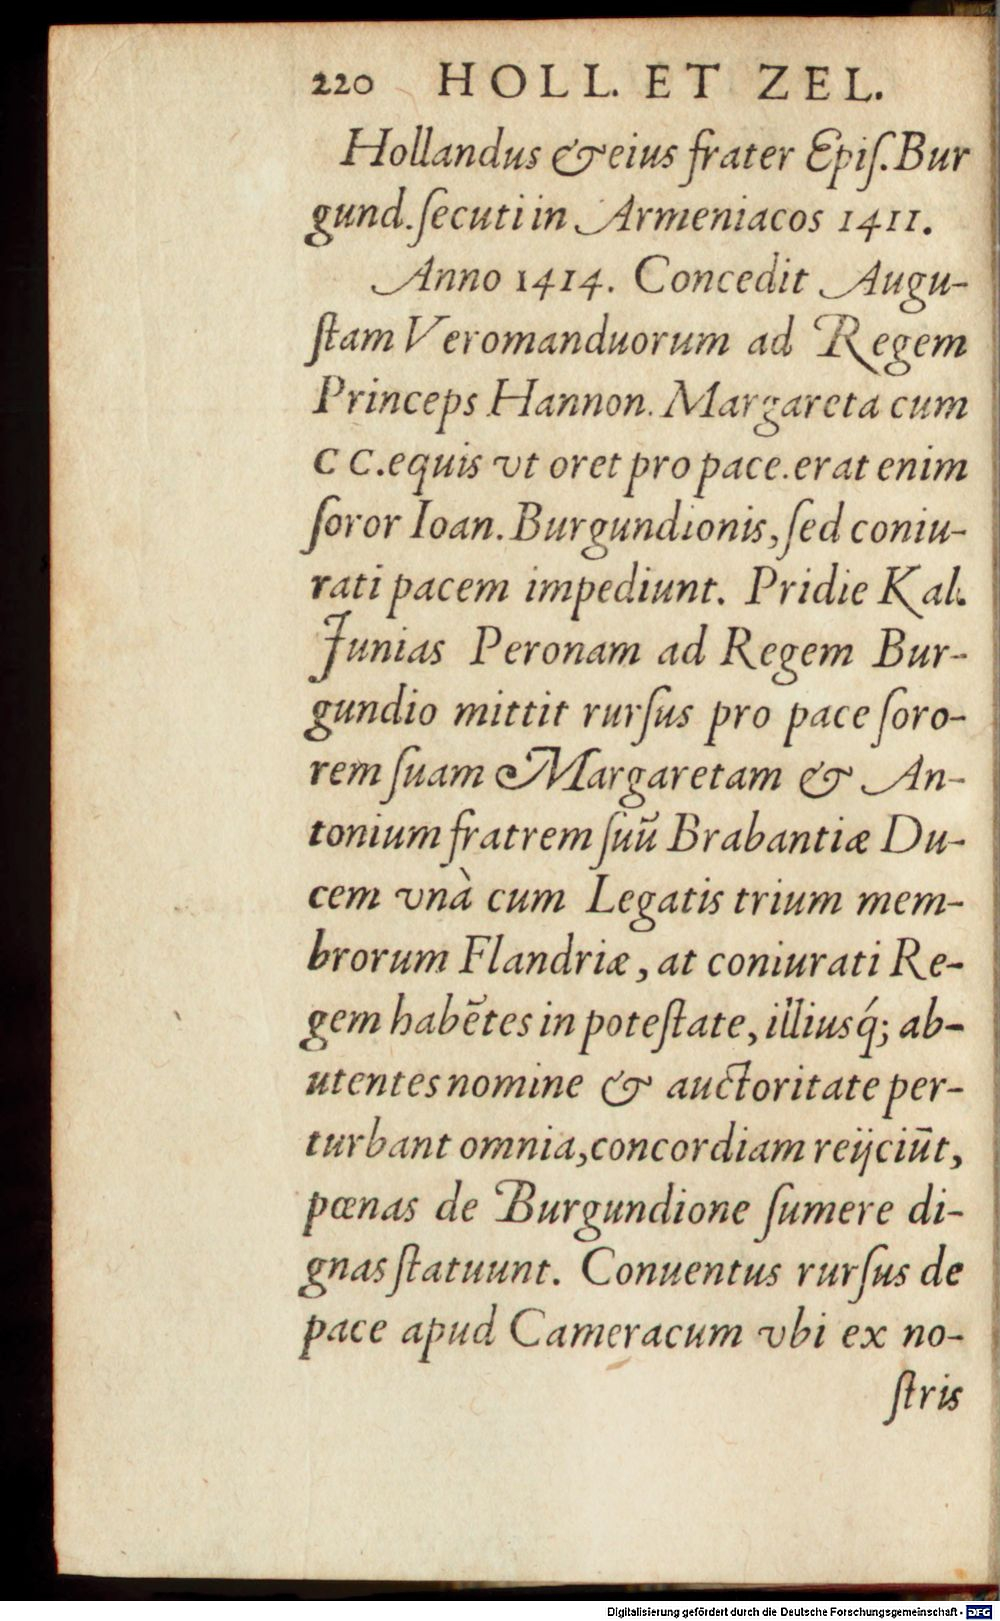 220 HOLL. ET ZEL.
Hollandus & eius frater Epiſ. Bur
gund. ſecuti in Armeniacos 1411.
Anno 1414. Concedit Augu-
ſtam Veromanduorum ad Regem
Princeps Hannon. Margareta cum
CC. equis vt oret pro pace. erat enim
ſoror Ioan. Burgundionis, ſed coniu-
rati pacem impediunt. Pridie Kal.
Junias Peronam ad Regem Bur-
gundio mittit rurſus pro pace ſoro-
rem ſuam Margaretam & An-
tonium fratrem ſuũ Brabantiæ Du-
cem vnà cum Legatis trium mem-
brorum Flandriæ, at coniurati Re-
gem habẽtes in poteſtate, illiusq́; ab-
utentes nomine & auctoritate per-
turbant omnia, concordiam reijciũt,
pœnas de Burgundione ſumere di-
gnas ſtatuunt. Conuentus rurſus de
pace apud Cameracum vbi ex no-
ſtris
Digitalisierung gefördert durch die Deutsche Forschungsgemeinschaft - DFG